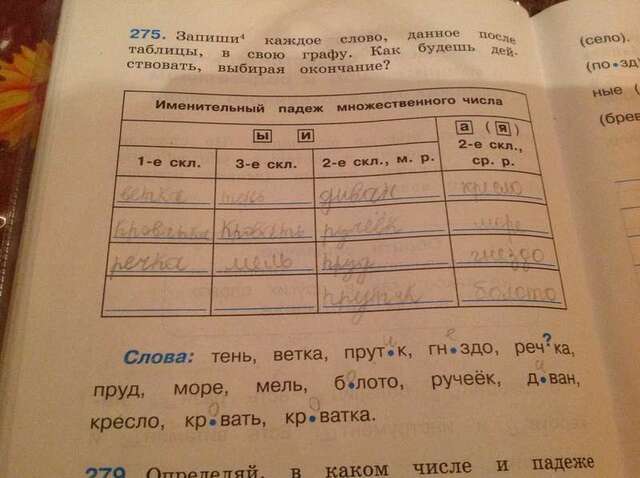 275. Запиши⁴ каждое слово, данное после
таблицы, в свою графу. Как будешь дей-
ствовать, выбирая окончание?
Именительный падеж множественного числа
ы и а (я)
1-е скл. 3-е скл. 2-е скл., м. р. 2-е скл., ср. р.
ветка тень диван кресло
кроватка кровать ручеёк море
речка мель пруд гнездо
прутик болото
Слова: тень, ветка, прут•ик, гн•ездо, реч?ка,
пруд, море, мель, б•олото, ручеёк, д•иван,
кресло, кр•овать, кр•оватка.
279 Определяй, в каком числе и падеже
(село).
(по•зд
ные (
(брев